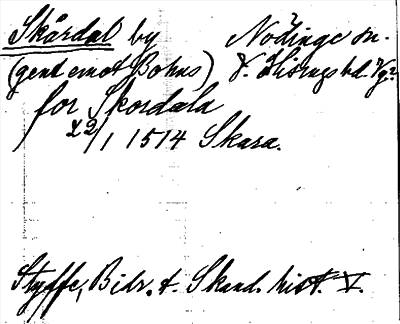 Skårdal by Nödinge sn.
(gent emot Bohus) V. Hisings hd. Vg.
for Skordala
22/1 1514 Skara.
Styffe, Bidr. t. Skand. hist. V.